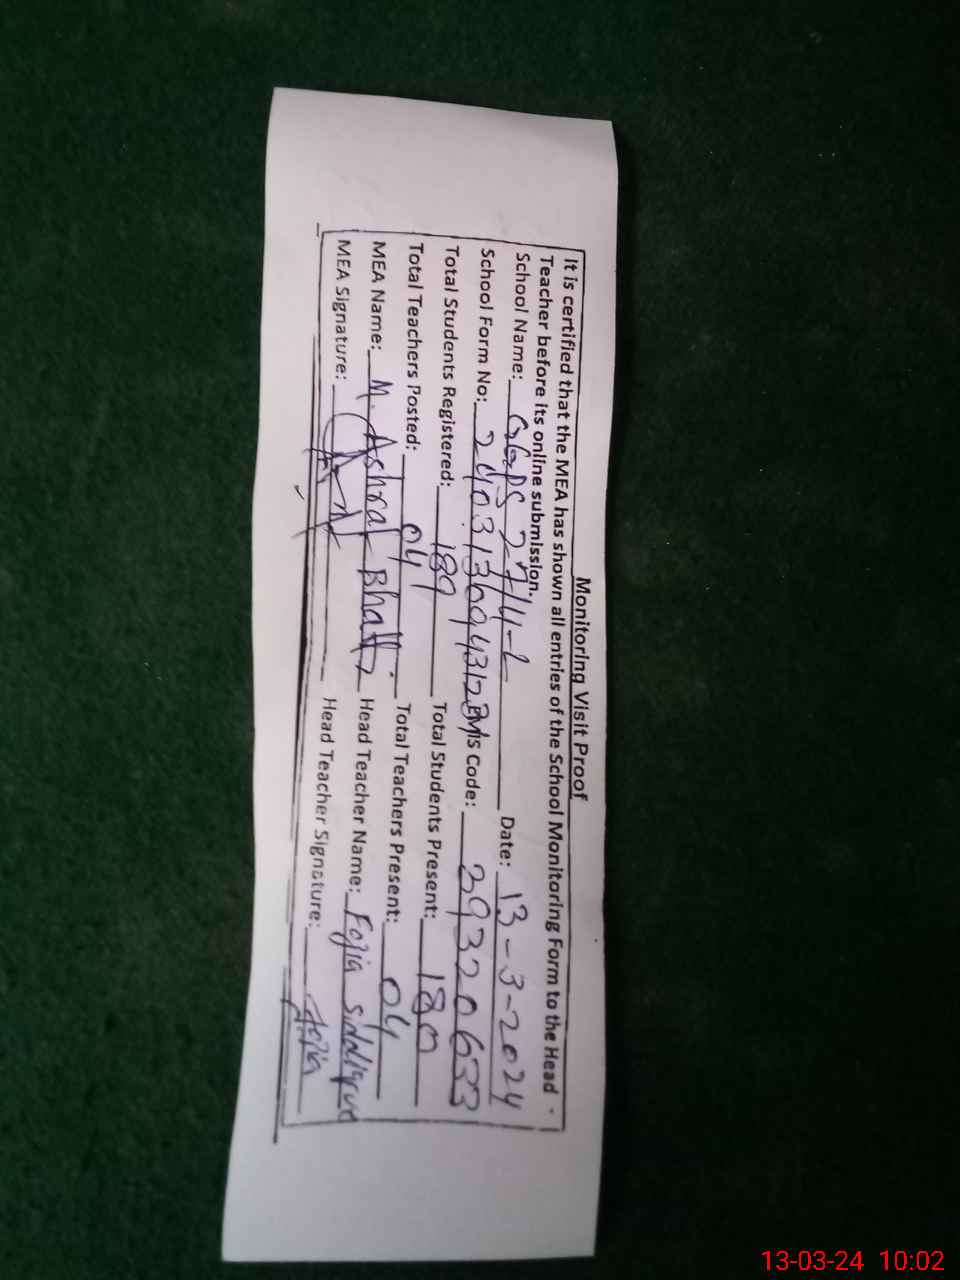 Monitoring Visit Proof
It is certified that the MEA has shown all entries of the School Monitoring Form to the Head
Teacher before its online submission.
School Name: GGPS 27/4-L Date: 13-3-2024
School Form No: EMIS Code: 39320633
Total Students Registered: 189 Total Students Present: 180
Total Teachers Posted: 04 Total Teachers Present: 04
MEA Name: M. Ashraf Bhatti Head Teacher Name: Fozia Siddique
MEA Signature: Head Teacher Signature: fozia
13-03-24 10:02